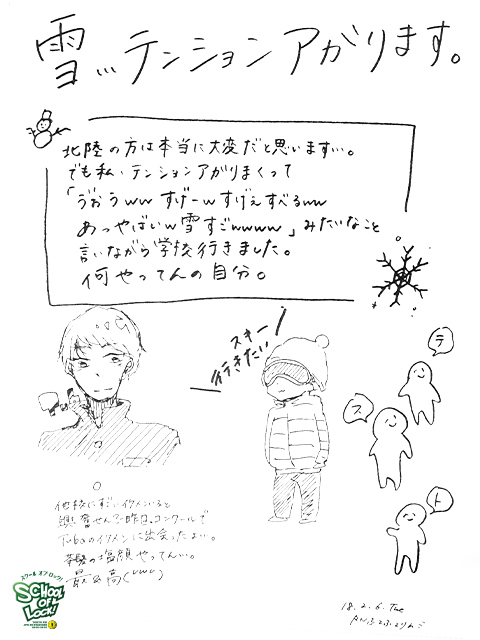 雪...テンションアがります。
北陸の方は本当に大変だと思います...。
でも私、テンションアがりまくって
「ゔおうww すげーw すげえすべるww
あっやばいw 雪すごwwww」みたいなこと
言いながら学校行きました。
何やってんの自分。
スキー
行きたい
テ
ス
ト
他校にすごいイケメンいると
興奮せん?昨日、コンクールで
Tubaのイケメンに出会ったよ...。
の塩顔やってん...。
最&高
スクールオブロック!
SCHOOL
OF
LOCK!
18. 2. 6. Tue